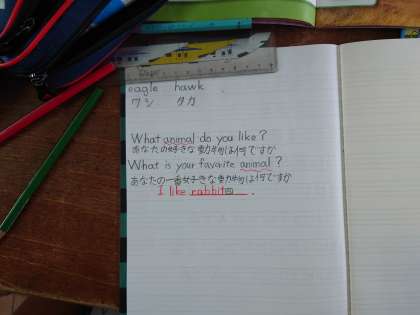 eagle hawk
ワシ タカ
What animal do you like?
あなたの好きな動物は何ですか
What is your favorite animal?
あなたの一番好きな動物は何ですか
I like rabbit .